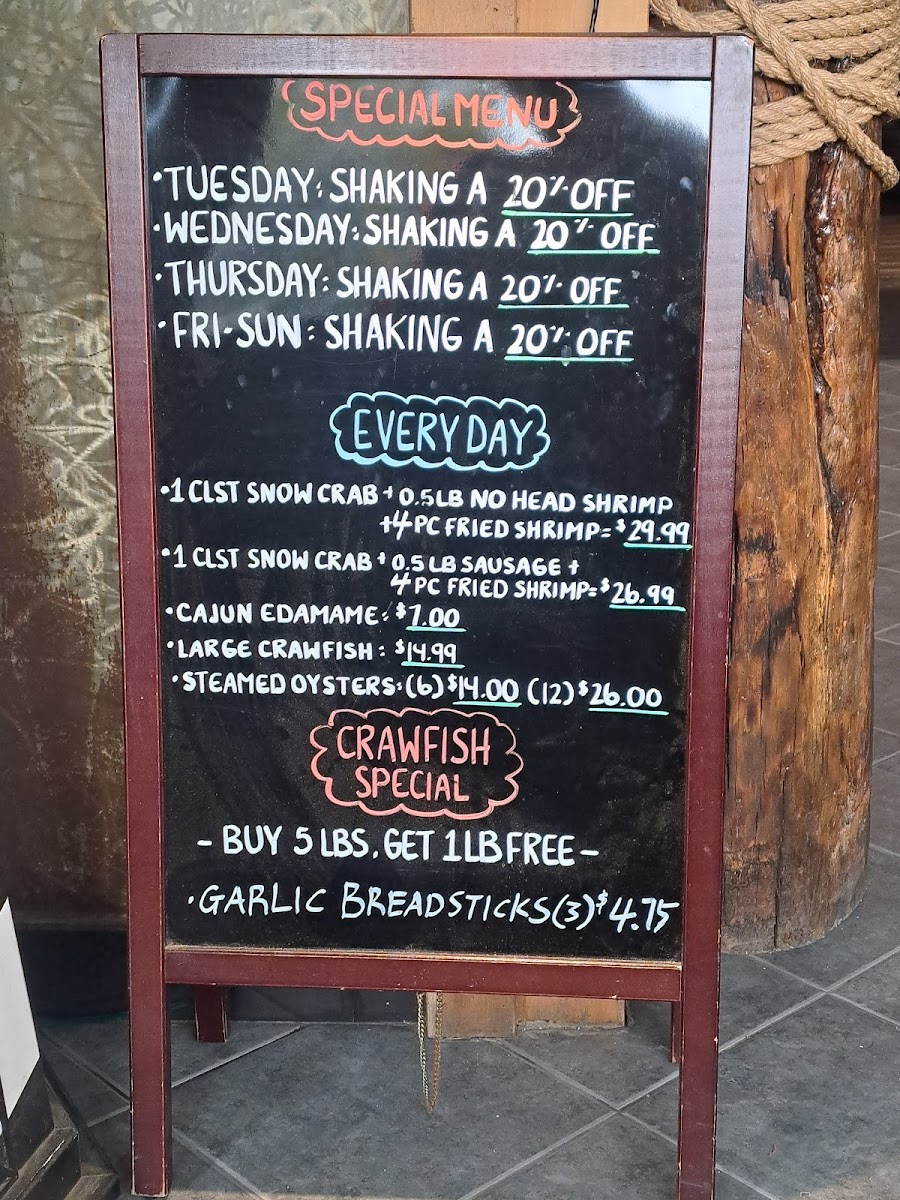 SPECIAL MENU
• TUESDAY: SHAKING A 20% OFF
• WEDNESDAY: SHAKING A 20% OFF
• THURSDAY: SHAKING A 20% OFF
• FRI-SUN: SHAKING A 20% OFF
EVERY DAY
• 1 CLST SNOW CRAB + 0.5LB NO HEAD SHRIMP
+4 PC FRIED SHRIMP = $29.99
• 1 CLST SNOW CRAB + 0.5 LB SAUSAGE +
4 PC FRIED SHRIMP = $26.99
• CAJUN EDAMAME: $7.00
• LARGE CRAWFISH: $14.99
• STEAMED OYSTERS: (6) $14.00 (12) $26.00
CRAWFISH
SPECIAL
- BUY 5 LBS. GET 1 LB FREE -
• GARLIC BREADSTICKS (3) $4.75